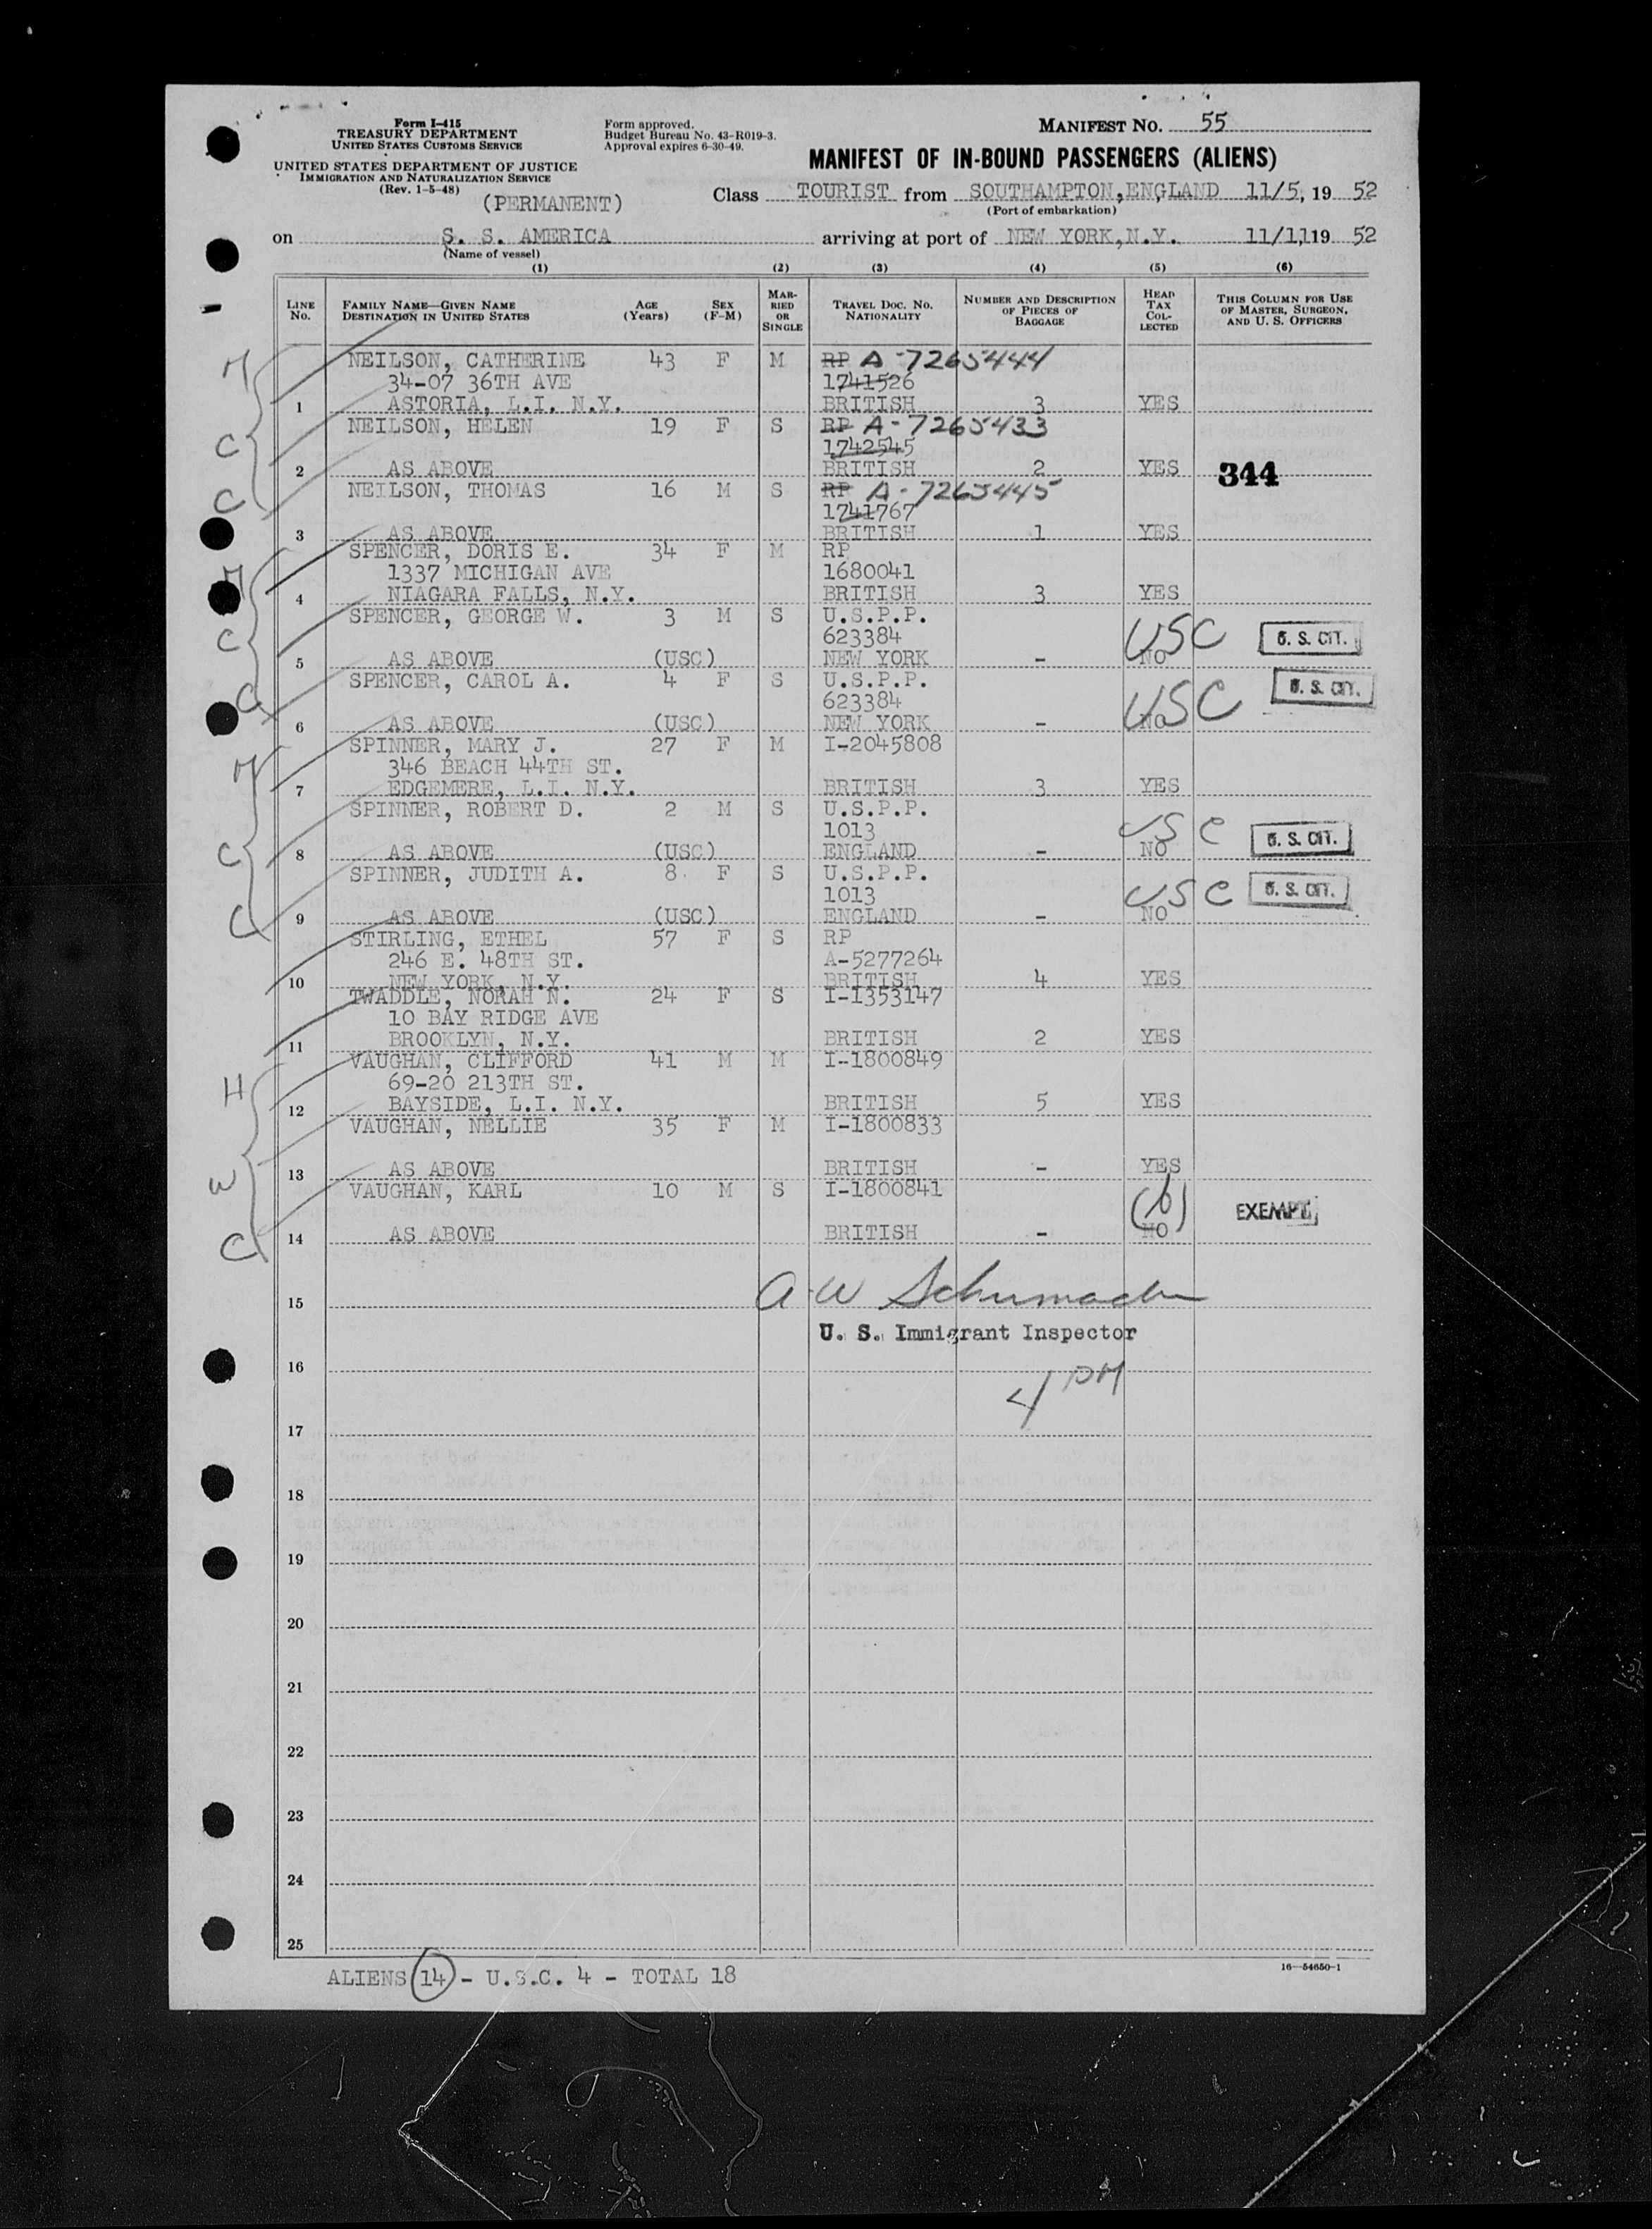 Form I-415
TREASURY DEPARTMENT
UNITED STATES CUSTOMS SERVICE
UNITED STATES DEPARTMENT OF JUSTICE
IMMIGRATION AND NATURALIZATION SERVICE
(Rev. 1-5-48)
(PERMANENT)
Form approved.
Budget Bureau No. 43-R019-3.
Approval expires 6-30-49.
MANIFEST NO. 55
MANIFEST OF IN-BOUND PASSENGERS (ALIENS)
Class TOURIST from SOUTHAMPTON, ENGLAND 11/5, 19 52
(Port of embarkation)
on S. S. AMERICA arriving at port of NEW YORK, N.Y. 11/11, 19 52
(Name of vessel)
(1) (2) (3) (4) (5) (6)
LINE No. FAMILY NAME—GIVEN NAME DESTINATION IN UNITED STATES AGE (Years) SEX (F-M) MARRIED OR SINGLE TRAVEL DOC. NO. NATIONALITY NUMBER AND DESCRIPTION OF PIECES OF BAGGAGE HEAD TAX COLLECTED THIS COLUMN FOR USE OF MASTER, SURGEON, AND U. S. OFFICERS
M NEILSON, CATHERINE 43 F M RP A-7265444
34-07 36TH AVE 1741526
1 ASTORIA, L.I. N.Y. BRITISH 3 YES
C NEILSON, HELEN 19 F S RP A-7265433
1742545
2 AS ABOVE BRITISH 2 YES 344
C NEILSON, THOMAS 16 M S RP A-7265445
1741767
3 AS ABOVE BRITISH 1 YES
M SPENCER, DORIS E. 34 F M RP
1337 MICHIGAN AVE 1680041
4 NIAGARA FALLS, N.Y. BRITISH 3 YES
C SPENCER, GEORGE W. 3 M S U.S.P.P.
623384 USC U. S. CIT.
5 AS ABOVE (USC) NEW YORK - NO
C SPENCER, CAROL A. 4 F S U.S.P.P.
623384 USC U. S. CIT.
6 AS ABOVE (USC) NEW YORK - NO
M SPINNER, MARY J. 27 F M I-2045808
346 BEACH 44TH ST.
7 EDGEMERE, L.I. N.Y. BRITISH 3 YES
SPINNER, ROBERT D. 2 M S U.S.P.P.
1013 USC U. S. CIT.
C 8 AS ABOVE (USC) ENGLAND - NO
SPINNER, JUDITH A. 8 F S U.S.P.P.
1013 USC U. S. CIT.
C 9 AS ABOVE (USC) ENGLAND - NO
STIRLING, ETHEL 57 F S RP
246 E. 48TH ST. A-5277264
10 NEW YORK, N.Y. BRITISH 4 YES
TWADDLE, NORAH N. 24 F S I-1353147
10 BAY RIDGE AVE
11 BROOKLYN, N.Y. BRITISH 2 YES
H VAUGHAN, CLIFFORD 41 M M I-1800849
69-20 213TH ST.
12 BAYSIDE, L.I. N.Y. BRITISH 5 YES
VAUGHAN, NELLIE 35 F M I-1800833
W 13 AS ABOVE BRITISH - YES
VAUGHAN, KARL 10 M S I-1800841 (b) EXEMPT
C 14 AS ABOVE BRITISH - NO
15 A W Schumacher
U. S. Immigrant Inspector
16
4 PM
17
18
19
20
21
22
23
24
25
ALIENS 14 - U.S.C. 4 - TOTAL 18
16—54650-1